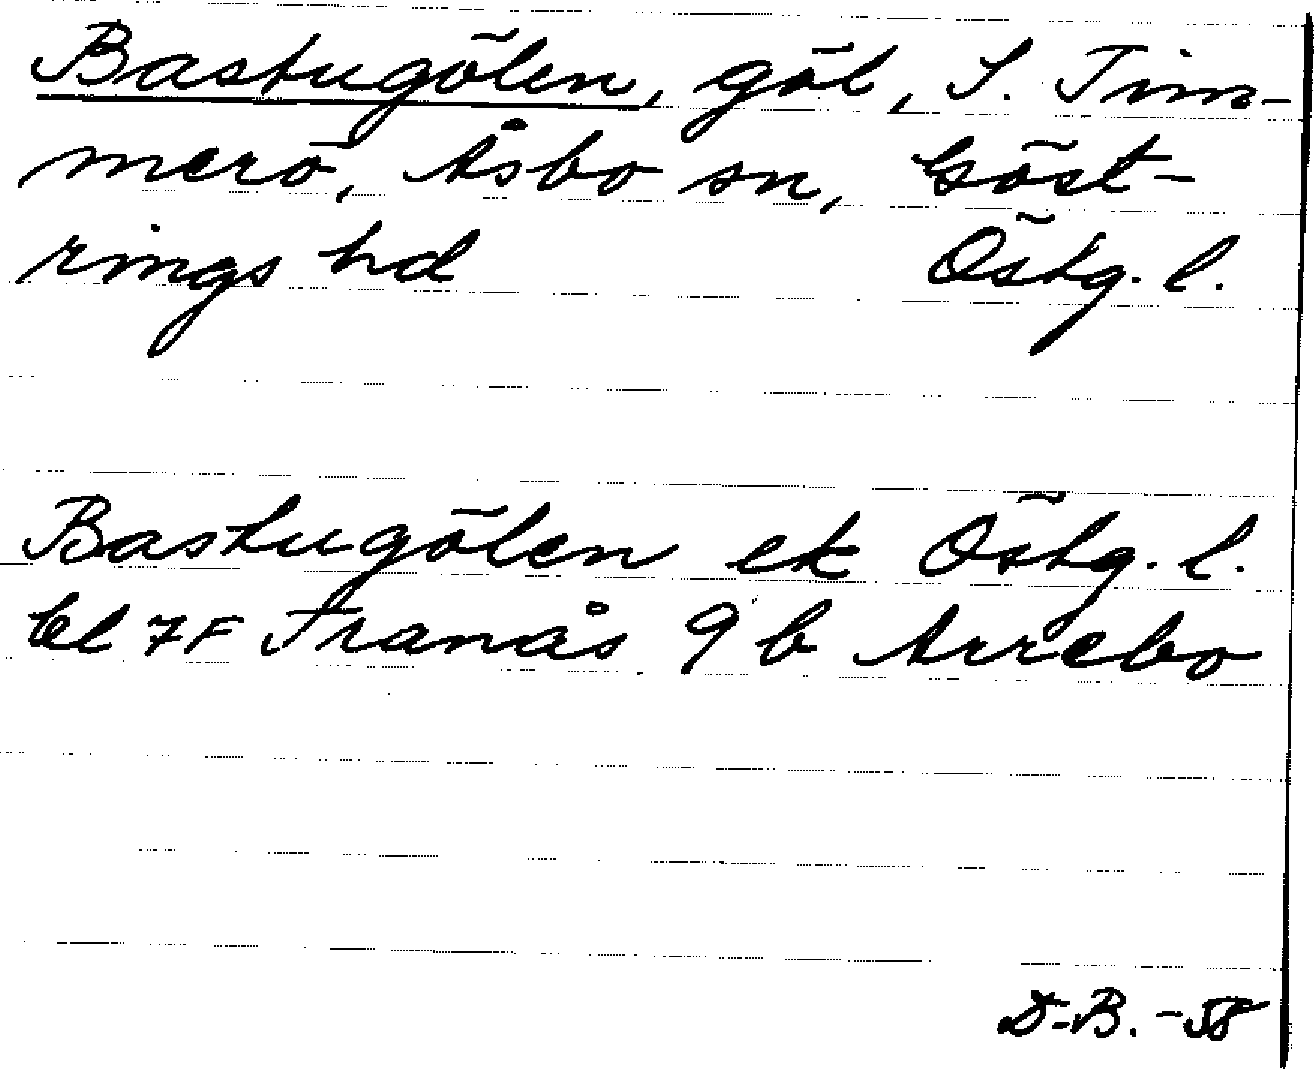 Bastugölen, göl, S. Tim-
merö, Åsbo sn, Göst-
rings hd Östg. l.
Bastugölen ek Östg. l.
bl 7F Tranås 9 b Arrebo
D-B. -58